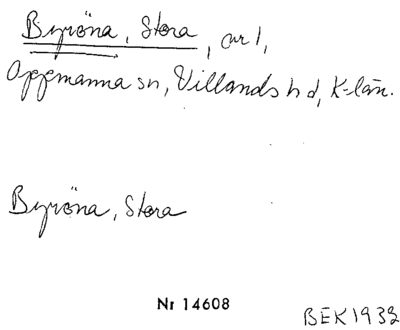 Byröna, Stora, avr 1,
Oppmanna sn, Villands hd, K-län.
Byröna, Stora
Nr 14608
BEK 1932